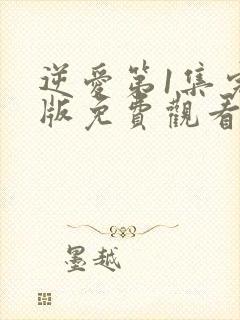 逆愛第1集完
版免費觀看
墨越